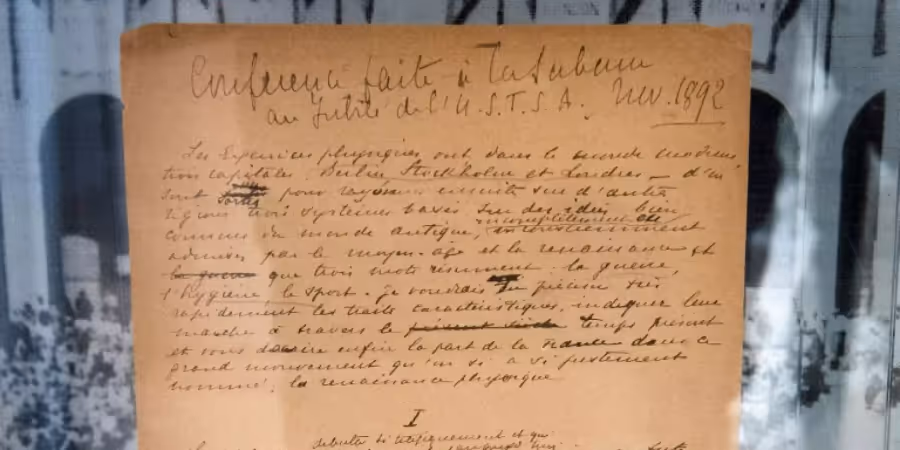 Conférence faite à la Sorbonne
au Jubilé de l'U.S.F.S.A. Nov. 1892
Les Exercices physiques ont dans le monde moderne
trois capitales, Berlin, Stockholm et Londres - d'où
sont sortis pour rayonner ensuite sur d'autres
régions trois systèmes basés sur des idées bien
connues du monde antique, incomplètement
admises par le moyen-âge et la renaissance et
la guerre que trois mots résument : la guerre,
l'hygiène, le sport. Je voudrais préciser très
rapidement les traits caractéristiques, indiquer leur
marche à travers le présent siècle temps présent
et vous dire enfin la part de la France dans ce
grand mouvement qu'on a si justement
nommé : la renaissance physique
I